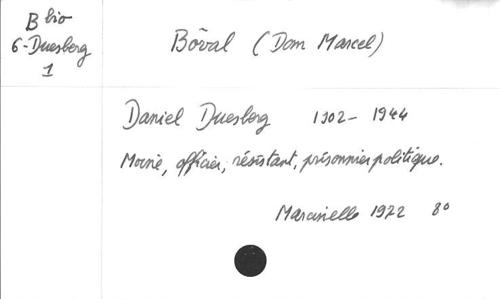 B bio
6-Duesberg
1
Bôval (Dom Marcel)
Daniel Duesberg 1902- 1944
Moine, officier, résistant, prisonnier politique.
Marcinelle 1972 8°